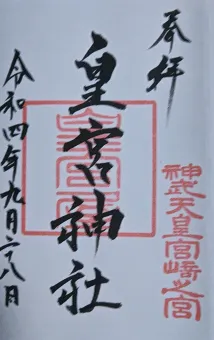 奉拝
神武天皇宮崎之宮
皇宮神社
皇宮神社
令和四年九月二八日